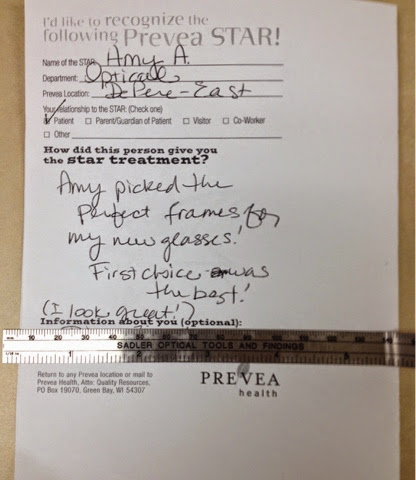 I'd like to recognize the
following Prevea STAR!
Name of the STAR Amy A.
Department: Optical
Prevea Location: DePere-East
Your relationship to the STAR: (Check one)
Patient □ Parent/Guardian of Patient □ Visitor □ Co-Worker
□ Other
How did this person give you
the star treatment?
Amy picked the
perfect frames for
my new glasses!
First choice was
the best!
(I look great!)
Information about you (optional):
10 20 30 40 50 60 70 80 90 100 110 120 130 140
SADLER OPTICAL TOOLS AND FINDINGS
1 2 3 4 5
Return to any Prevea location or mail to
Prevea Health, Attn: Quality Resources,
PO Box 19070, Green Bay, WI 54307
PREVEA
health